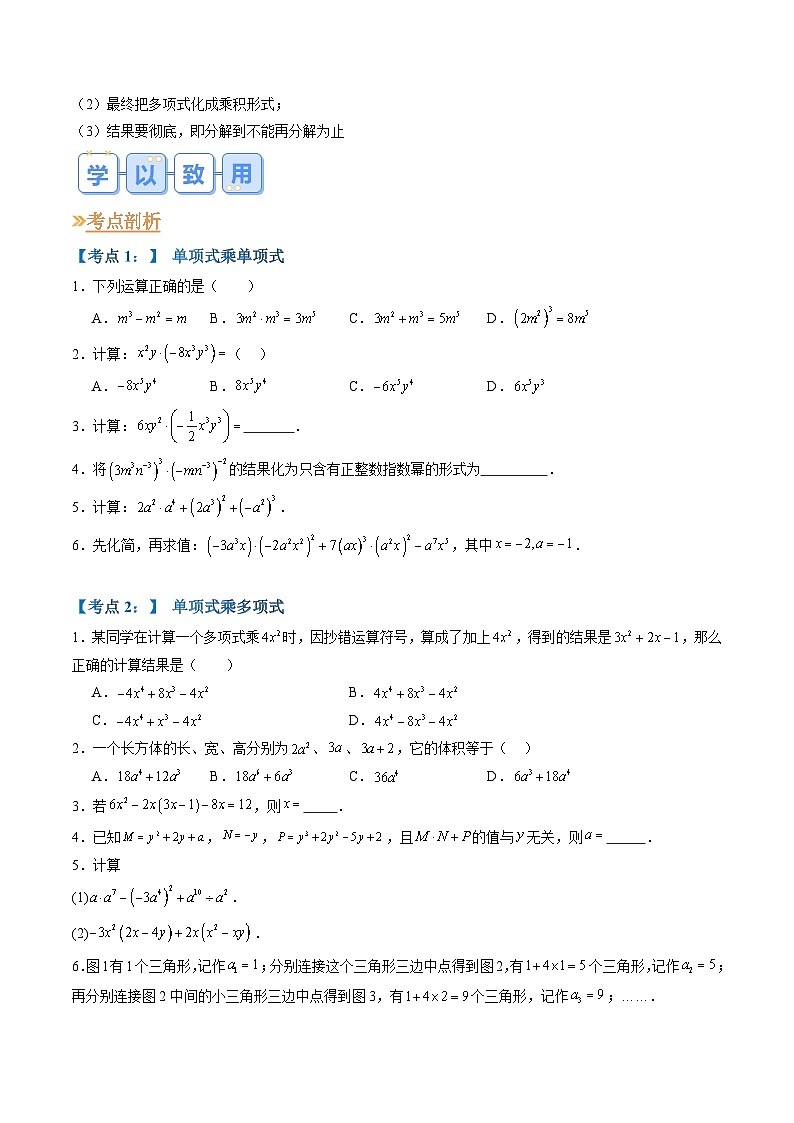 （2）最终把多项式化成乘积形式；
（3）结果要彻底，即分解到不能再分解为止
学以致用
考点剖析
【考点 1：】 单项式乘单项式
1．下列运算正确的是（　　）
A．m³－m²＝m B．3m²·m³＝3m⁵ C．3m²＋m³＝5m⁵ D．(2m²)³＝8m⁵
2．计算：x²y·(－8x³y³)＝（　）
A．－8x⁵y⁴ B．8x⁵y⁴ C．－6x⁵y⁴ D．6x⁵y³
3．计算：6xy²·(－1/2 x³y³)＝_______．
4．将(3m³n⁻³)³·(－mn⁻³)⁻²的结果化为只含有正整数指数幂的形式为_________．
5．计算：2a²·a⁴＋(2a³)²＋(－a²)³．
6．先化简，再求值：(－3a³x)·(－2a²x²)²＋7(ax)³·(a²x)²－a⁷x⁵，其中x＝－2,a＝－1．
【考点 2：】 单项式乘多项式
1．某同学在计算一个多项式乘4x²时，因抄错运算符号，算成了加上4x²，得到的结果是3x²＋2x－1，那么
正确的计算结果是（　　）
A．－4x⁴＋8x³－4x² B．4x⁴＋8x³－4x²
C．－4x⁴＋x³－4x² D．4x⁴－8x³－4x²
2．一个长方体的长、宽、高分别为2a²、3a、3a＋2，它的体积等于（　）
A．18a⁴＋12a³ B．18a⁶＋6a³ C．36a⁴ D．6a³＋18a⁴
3．若6x²－2x(3x－1)－8x＝12，则x＝_____．
4．已知M＝y²＋2y＋a，N＝－y，P＝y³＋2y²－5y＋2，且M·N＋P的值与y无关，则a＝______．
5．计算
(1)a·a⁷－(－3a⁴)²＋a¹⁰÷a²．
(2)－3x²(2x－4y)＋2x(x²－xy)．
6．图1有1个三角形，记作a₁＝1；分别连接这个三角形三边中点得到图2，有1＋4×1＝5个三角形，记作a₂＝5；
再分别连接图2中间的小三角形三边中点得到图3，有1＋4×2＝9个三角形，记作a₃＝9；……．